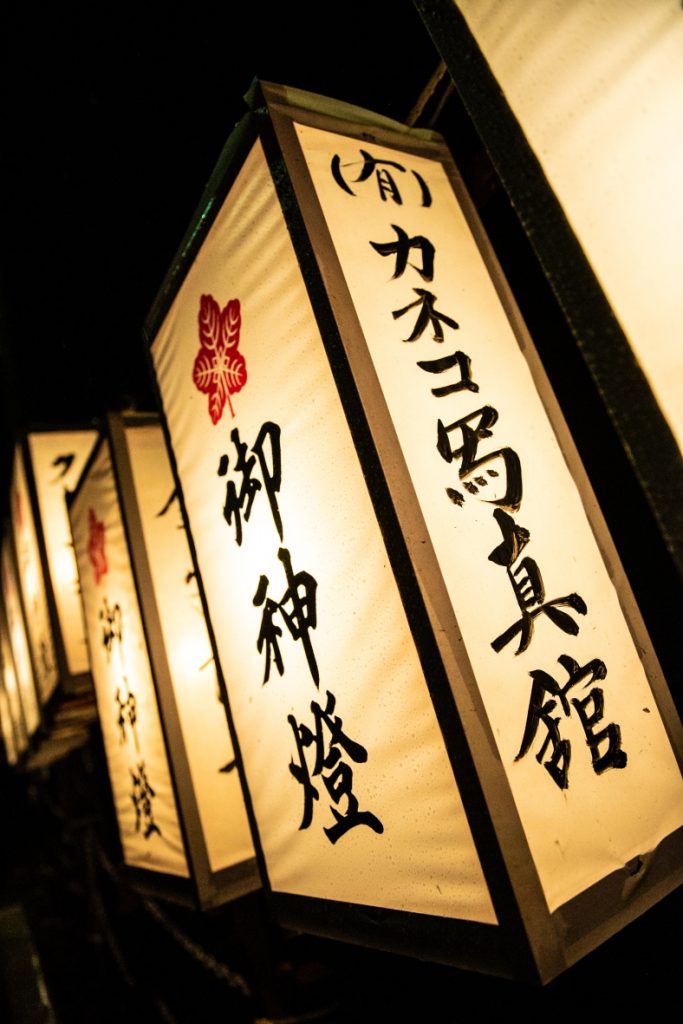 (有)カネコ写真館
御神燈
御神燈